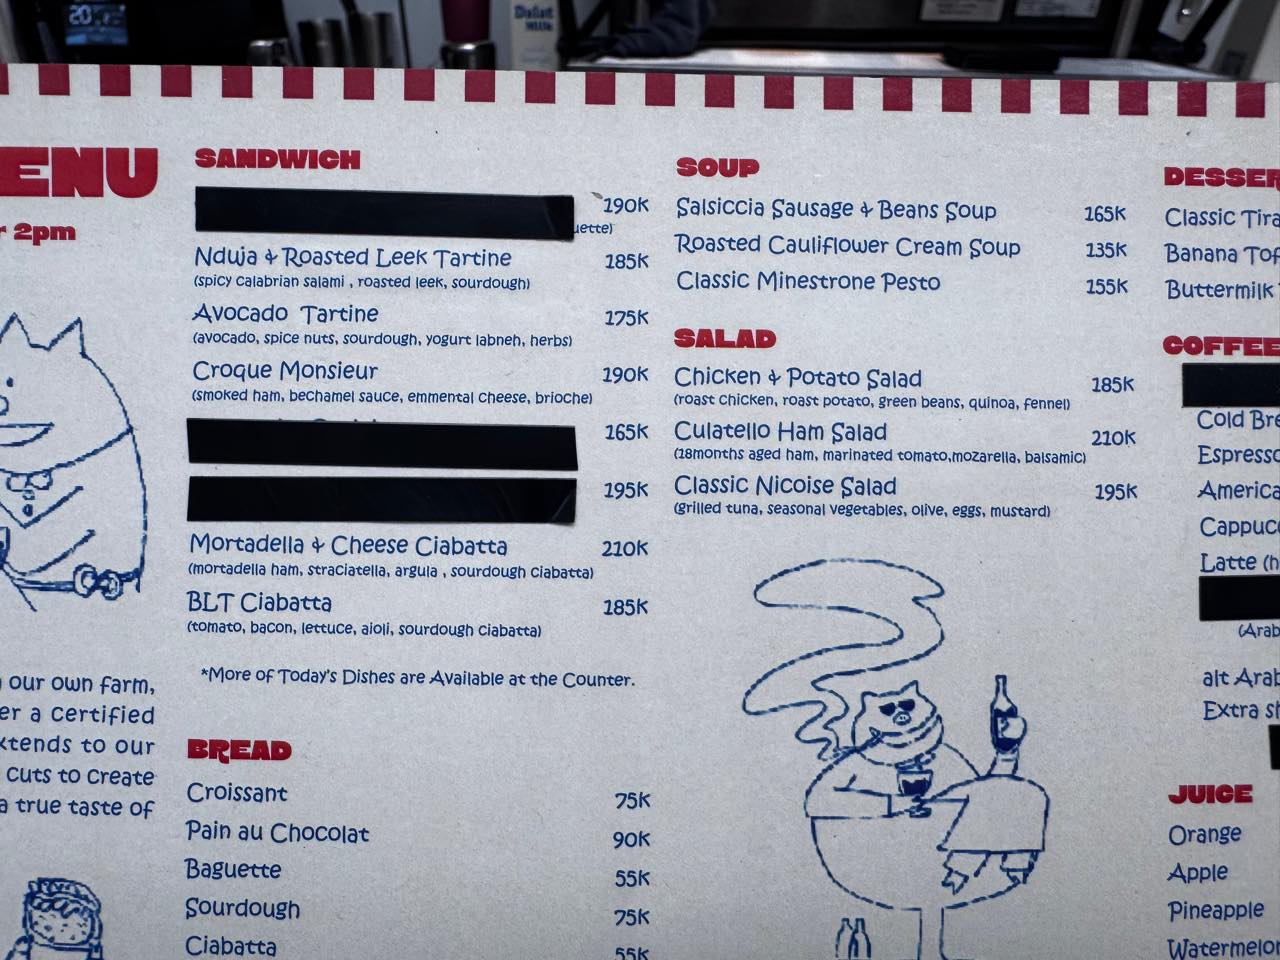 ENU
r 2pm
our own farm,
er a certified
xtends to our
cuts to create
a true taste of
SANDWICH
190K
uette)
Nduja & Roasted Leek Tartine 185K
(spicy calabrian salami , roasted leek, sourdough)
Avocado Tartine 175K
(avocado, spice nuts, sourdough, yogurt labneh, herbs)
Croque Monsieur 190K
(smoked ham, bechamel sauce, emmental cheese, brioche)
165K
195K
Mortadella & Cheese Ciabatta 210K
(mortadella ham, straciatella, argula , sourdough ciabatta)
BLT Ciabatta 185K
(tomato, bacon, lettuce, aioli, sourdough ciabatta)
*More of Today's Dishes are Available at the Counter.
BREAD
Croissant 75K
Pain au Chocolat 90K
Baguette 55K
Sourdough 75K
Ciabatta 55K
SOUP
Salsiccia Sausage & Beans Soup 165K
Roasted Cauliflower Cream Soup 135K
Classic Minestrone Pesto 155K
SALAD
Chicken & Potato Salad 185K
(roast chicken, roast potato, green beans, quinoa, fennel)
Culatello Ham Salad 210K
(18months aged ham, marinated tomato,mozarella, balsamic)
Classic Nicoise Salad 195K
(grilled tuna, seasonal vegetables, olive, eggs, mustard)
DESSER
Classic Tira
Banana Tof
Buttermilk
COFFEE
Cold Bre
Espresso
America
Cappucc
Latte (h
(Arab
alt Arab
Extra sh
JUICE
Orange
Apple
Pineapple
Watermelon